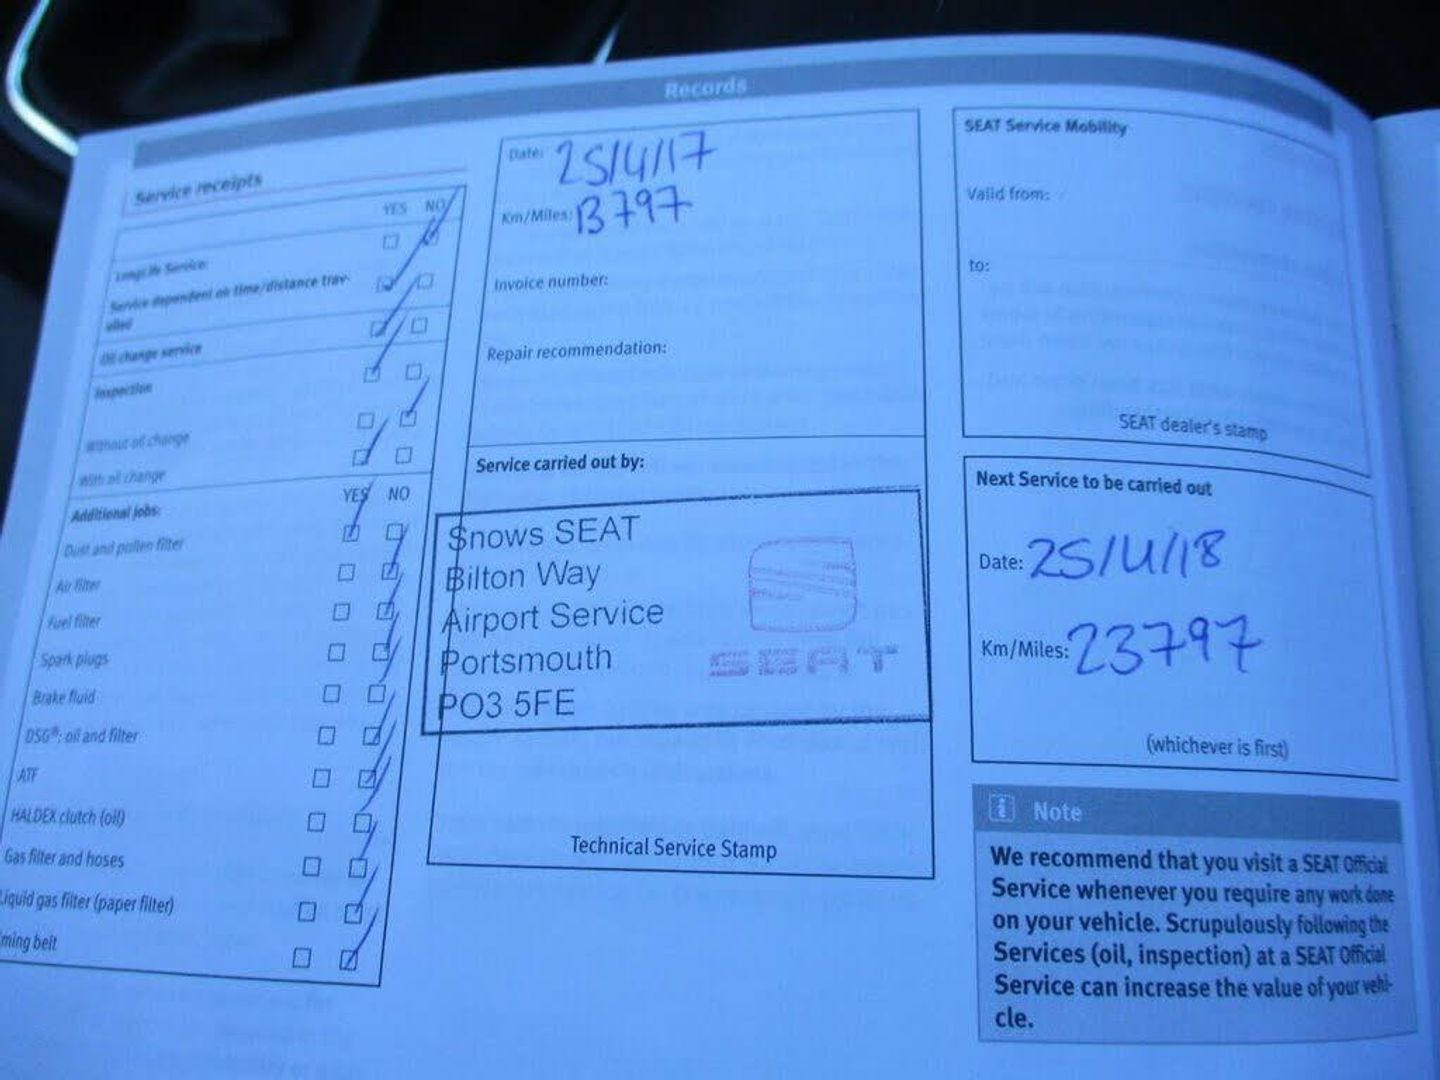 Records
Service receipts
YES NO
LongLife Service:
Service dependent on time/distance trav-
elled
Oil change service
Inspection
Without oil change
With oil change
Additional jobs:
YES NO
Dust and pollen filter
Air filter
Fuel filter
Spark plugs
Brake fluid
DSG®: oil and filter
ATF
HALDEX clutch (oil)
Gas filter and hoses
Liquid gas filter (paper filter)
ming belt
Date: 25/4/17
Km/Miles: 13797
Invoice number:
Repair recommendation:
Service carried out by:
Snows SEAT
Bilton Way
Airport Service
Portsmouth
PO3 5FE
SEAT
Technical Service Stamp
SEAT Service Mobility
Valid from:
to:
SEAT dealer's stamp
Next Service to be carried out
Date: 25/4/18
Km/Miles: 23797
(whichever is first)
i Note
We recommend that you visit a SEAT Official
Service whenever you require any work done
on your vehicle. Scrupulously following the
Services (oil, inspection) at a SEAT Official
Service can increase the value of your vehi-
cle.